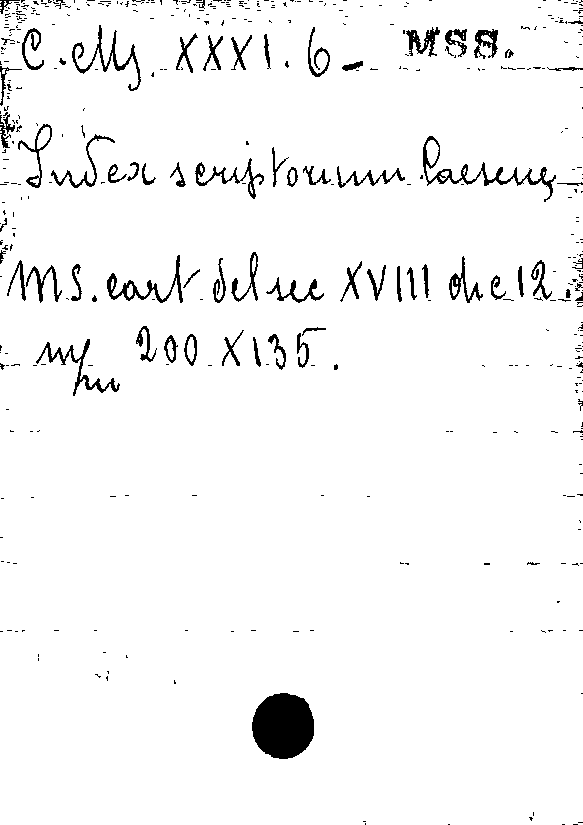 C. Ms. XXXI. 6 - MSS.
Index scriptorum Caesenę
MS. cart del sec XVIII di c 12.
mm 200 X 135.